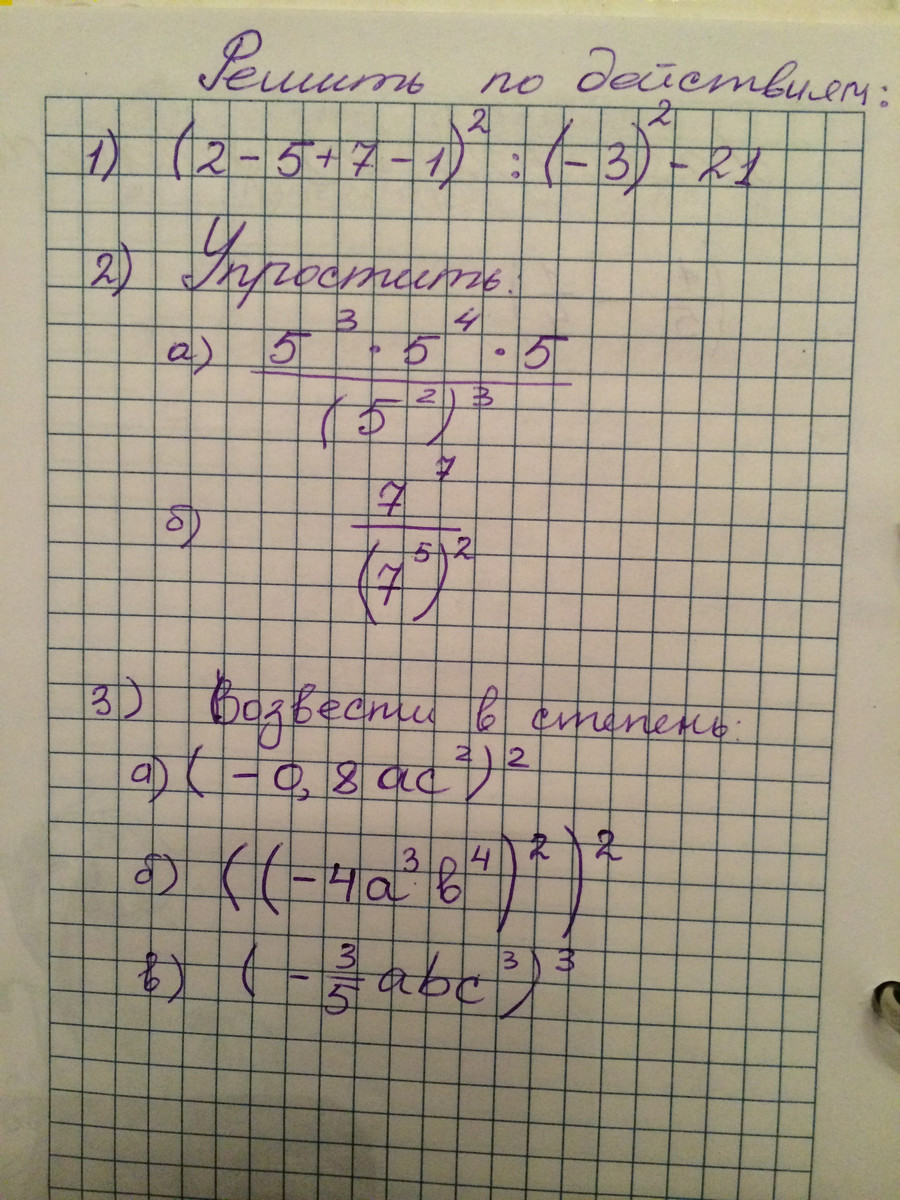 Решить по действиям:
1) (2 - 5 + 7 - 1)² : (-3)² - 21
2) Упростить:
а) 5³ · 5⁴ · 5
(5²)³
б) 7⁷
(7⁵)²
3) Возвести в степень:
а) (-0,8ac²)²
б) ((-4a³b⁴)²)²
в) (-3/5 abc³)³